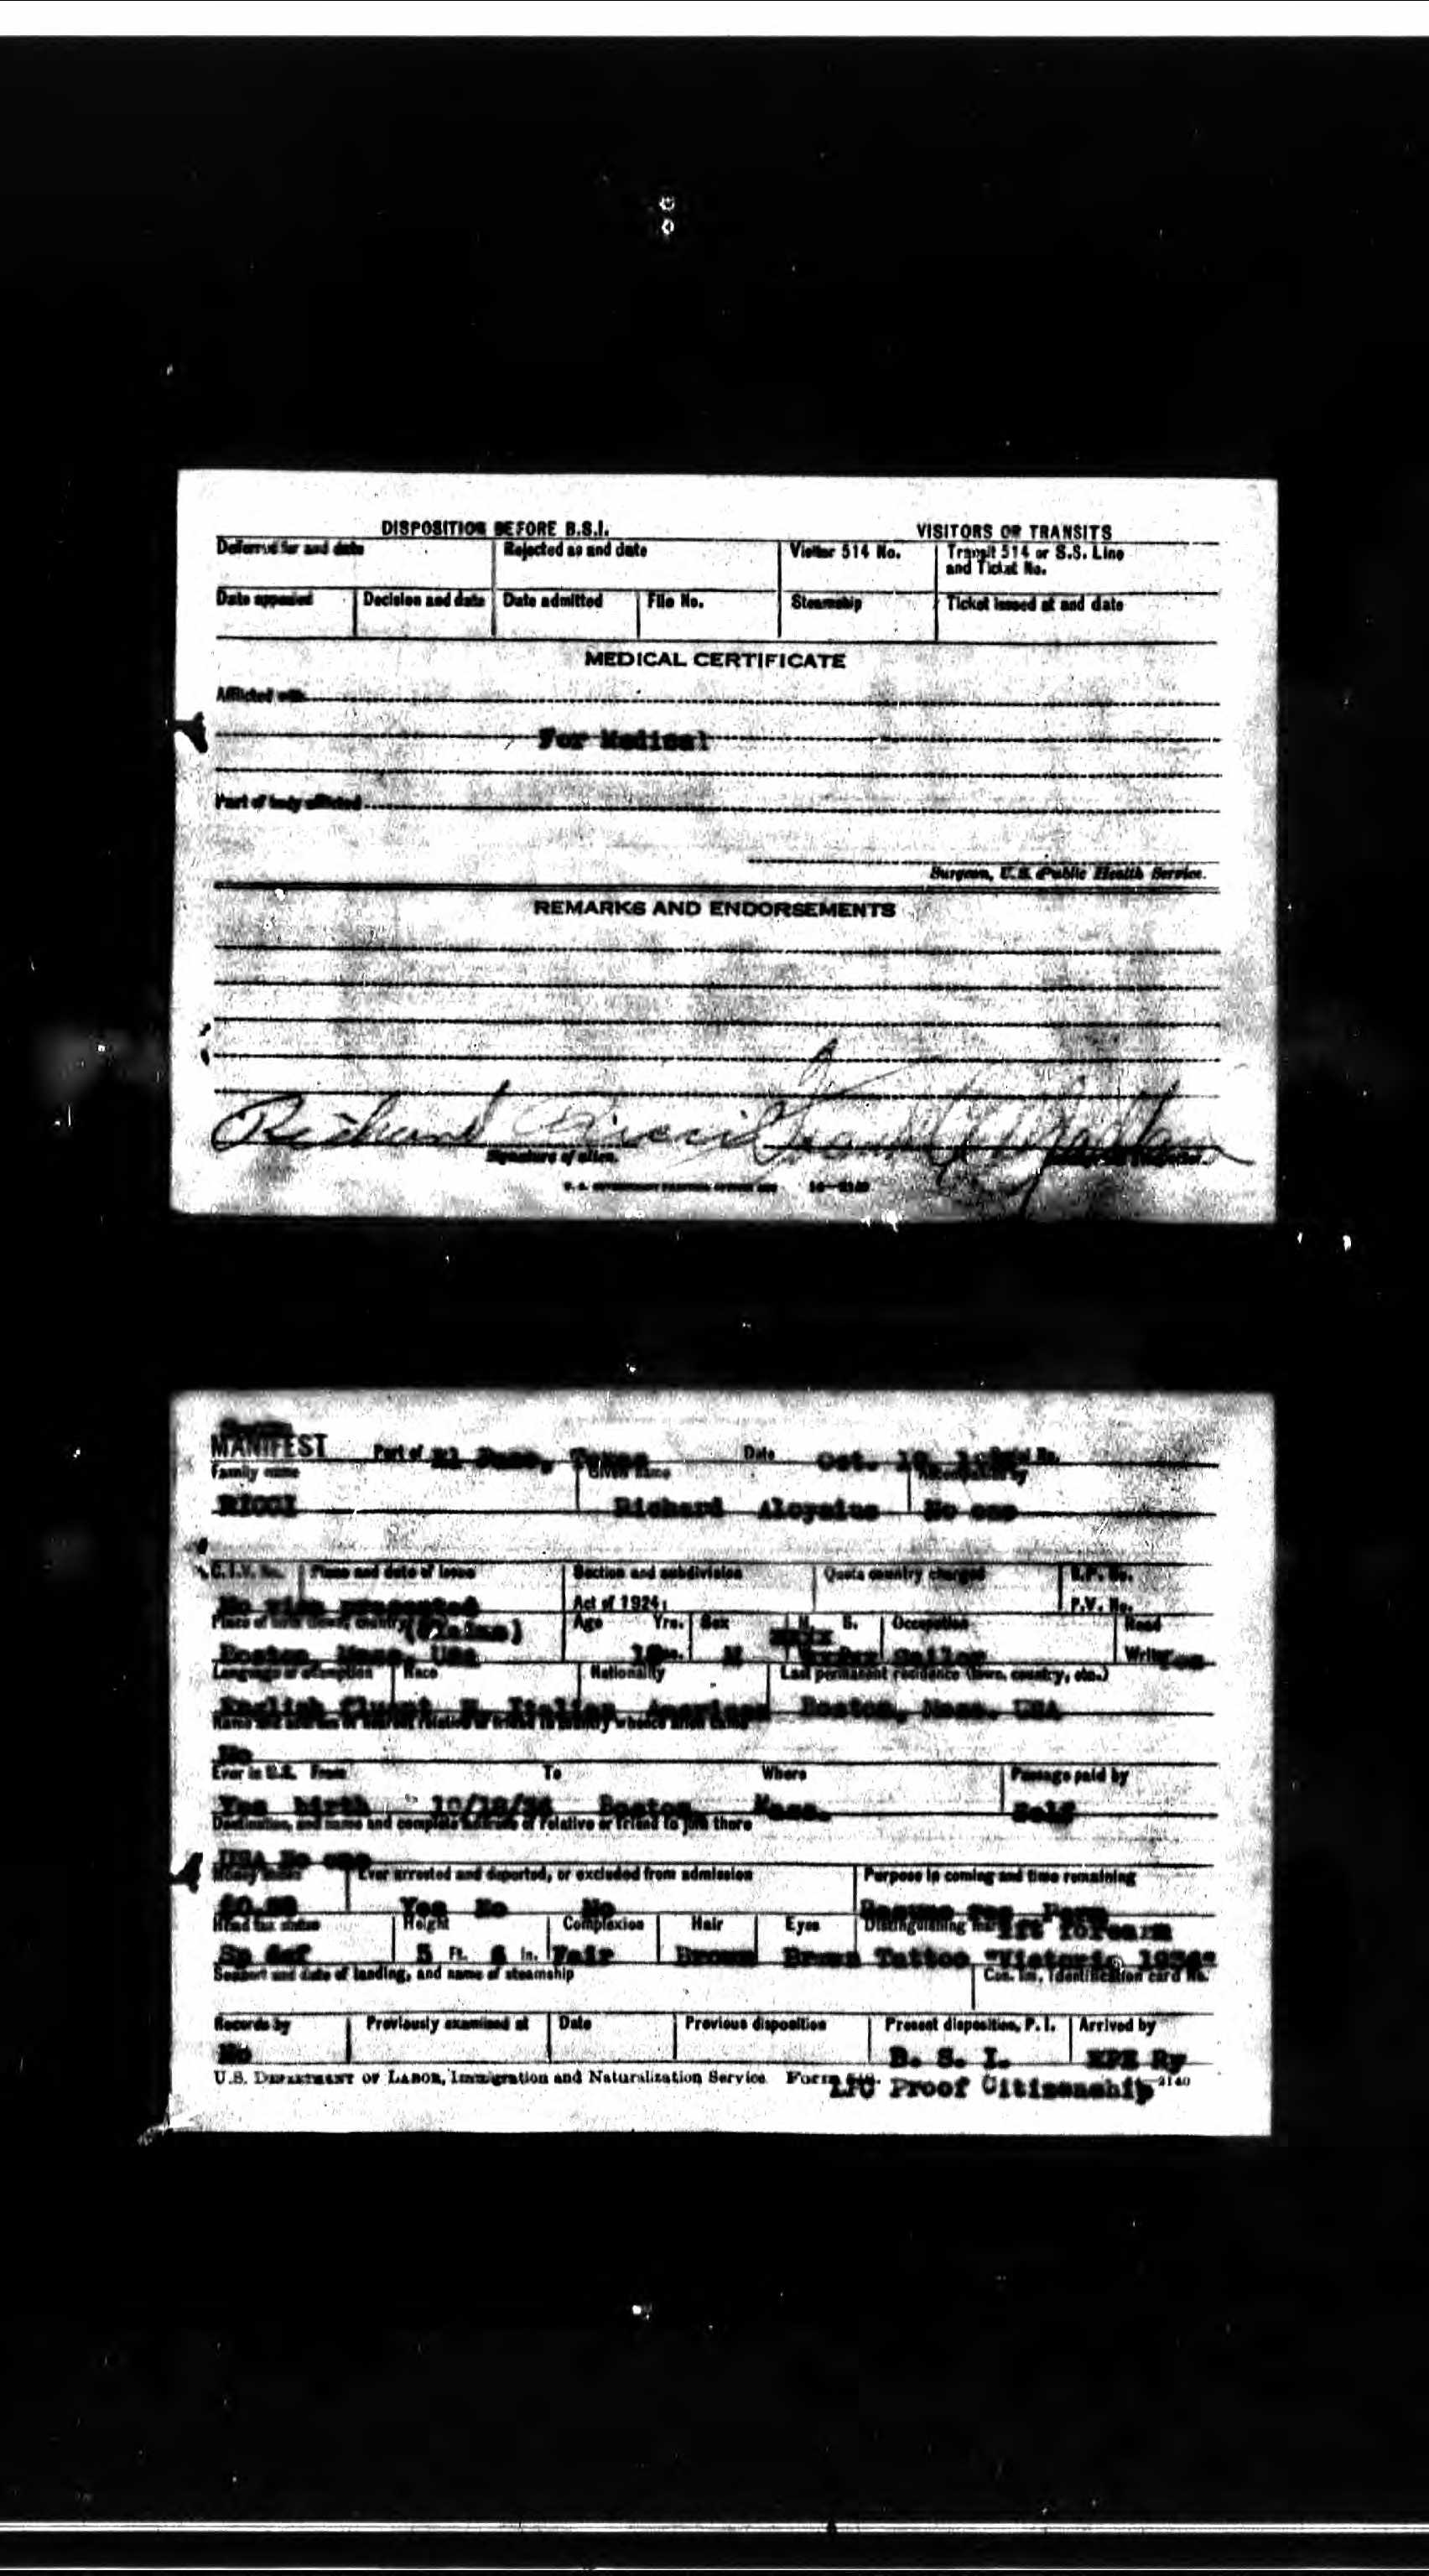 DISPOSITION BEFORE B.S.I. VISITORS OR TRANSITS
Deferred for and date Rejected as and date Visitor 514 No. Transit 514 or S.S. Line
and Ticket No.
Date appealed Decision and date Date admitted File No. Steamship Ticket issued at and date
MEDICAL CERTIFICATE
Afflicted with
For Medical
Part of body afflicted
Surgeon, U.S. Public Health Service.
REMARKS AND ENDORSEMENTS
Richard Ricci
Signature of alien.
MANIFEST Port of El Paso, Texas Date Oct. 10,
Family name Given name Accompanied by
RICCI Richard Aloysius No one
C.I.V. No. Place and date of issue Section and subdivision Quota country charged R.P. No.
No visa presented Act of 1924: P.V. No.
(Claims) Age Yrs. Sex M. S. Occupation Read
Boston, Mass, USA M Sailor Write
Language or exemption Race Nationality Last permanent residence (town, country, etc.)
English fluent Italian American Boston, Mass. USA
Name and address of nearest relative or friend in country whence alien came
No
Ever in U.S. From To Where Passage paid by
Yes birth Boston, Mass. Self
Destination, and name and complete address of relative or friend to join there
USA No one
Money shown Ever arrested and deported, or excluded from admission Purpose in coming and time remaining
Yes No No Resume res. Perm
Head tax status Height Complexion Hair Eyes Distinguishing marks lft forearm
5 Ft. 6 In. Fair Brown Brown Tattoo "Victoria 1934"
Seaport and date of landing, and name of steamship Con. Im. Identification card No.
Records by Previously examined at Date Previous disposition Present disposition, P. I. Arrived by
No B. S. I. EPE Ry
U.S. DEPARTMENT OF LABOR, Immigration and Naturalization Service Form LPC Proof Citizenship 2140